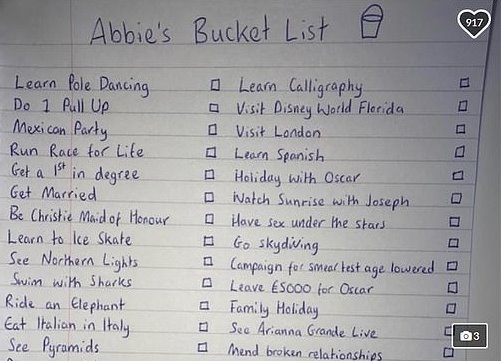 Abbie's Bucket List
917
Learn Pole Dancing
Do 1 Pull Up
Mexican Party
Run Race for Life
Get a 1st in degree
Get Married
Be Christie Maid of Honour
Learn to Ice Skate
See Northern Lights
Swim with Sharks
Ride an Elephant
Eat Italian in Italy
See Pyramids
Learn Calligraphy
Visit Disney World Florida
Visit London
Learn Spanish
Holiday with Oscar
Watch Sunrise with Joseph
Have sex under the stars
Go skydiving
Campaign for smear test age lowered
Leave £5000 for Oscar
Family Holiday
See Arianna Grande Live
Mend broken relationships
3